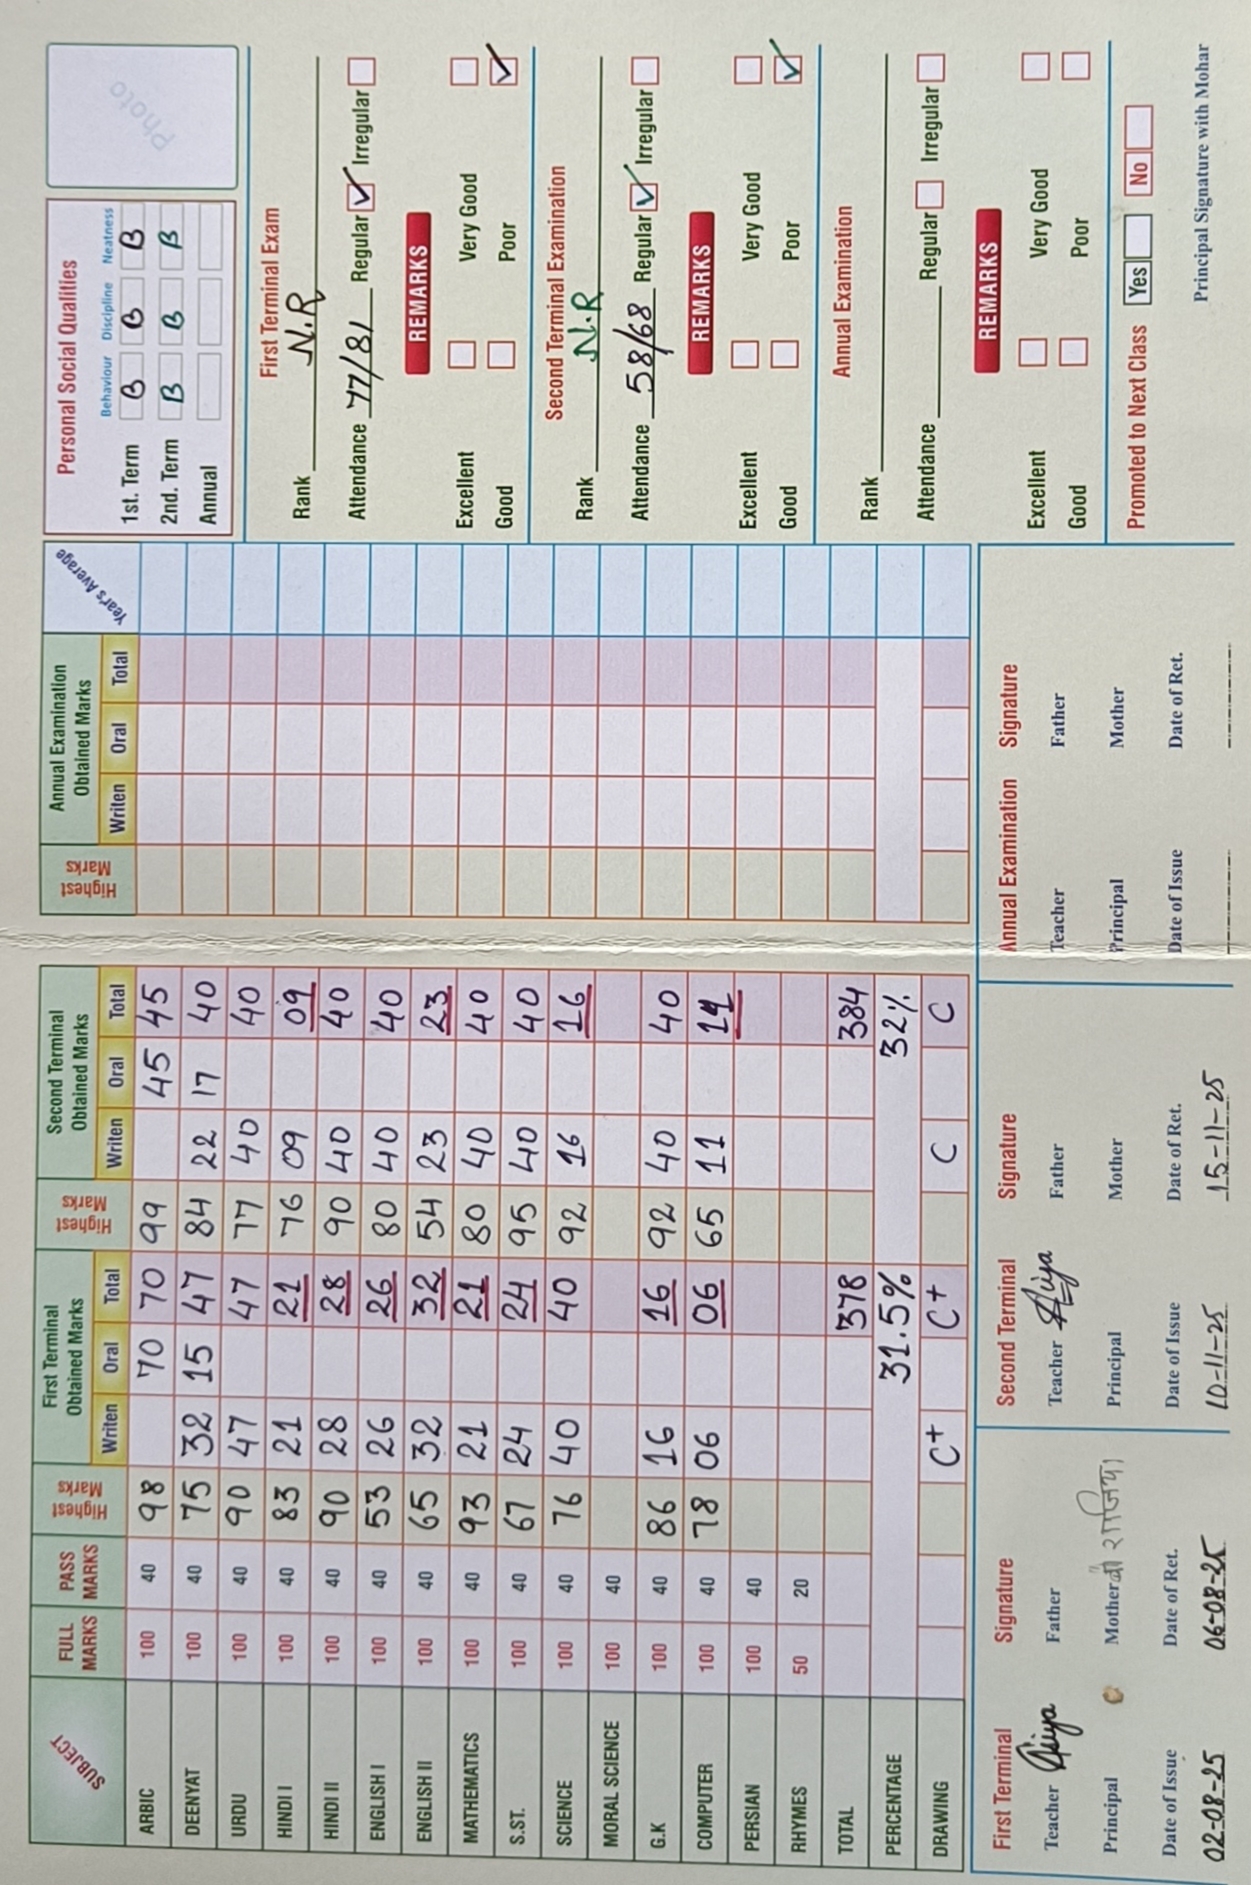 SUBJECT FULL MARKS PASS MARKS Highest Marks First Terminal Obtained Marks Writen Oral Total Highest Marks Second Terminal Obtained Marks Writen Oral Total Highest Marks Annual Examination Obtained Marks Writen Oral Total Year's Average
ARBIC 100 40 98 70 70 99 45 45
DEENYAT 100 40 75 32 15 47 84 22 17 40
URDU 100 40 90 47 47 77 40 40
HINDI I 100 40 83 21 21 76 09 09
HINDI II 100 40 90 28 28 90 40 40
ENGLISH I 100 40 53 26 26 80 40 40
ENGLISH II 100 40 65 32 32 54 23 23
MATHEMATICS 100 40 93 21 21 80 40 40
S.ST. 100 40 67 24 24 95 40 40
SCIENCE 100 40 76 40 40 92 16 16
MORAL SCIENCE 100 40
G.K 100 40 86 16 16 92 40 40
COMPUTER 100 40 78 06 06 65 11 11
PERSIAN 100 40
RHYMES 50 20
TOTAL 378 384
PERCENTAGE 31.5% 32%
DRAWING C+ C+ C C
First Terminal Signature
Teacher Father
Principal Mother
Date of Issue Date of Ret.
02-08-25 06-08-25
Second Terminal Signature
Teacher Father
Principal Mother
Date of Issue Date of Ret.
10-11-25 15-11-25
Annual Examination Signature
Teacher Father
Principal Mother
Date of Issue Date of Ret.
Personal Social Qualities
Behaviour Discipline Neatness
1st. Term B B B
2nd. Term B B B
Annual
Photo
First Terminal Exam
Rank N.R
Attendance 77/81 Regular Irregular
REMARKS
Excellent Very Good
Good Poor
Second Terminal Examination
Rank N.R
Attendance 58/68 Regular Irregular
REMARKS
Excellent Very Good
Good Poor
Annual Examination
Rank
Attendance Regular Irregular
REMARKS
Excellent Very Good
Good Poor
Promoted to Next Class Yes No
Principal Signature with Mohar